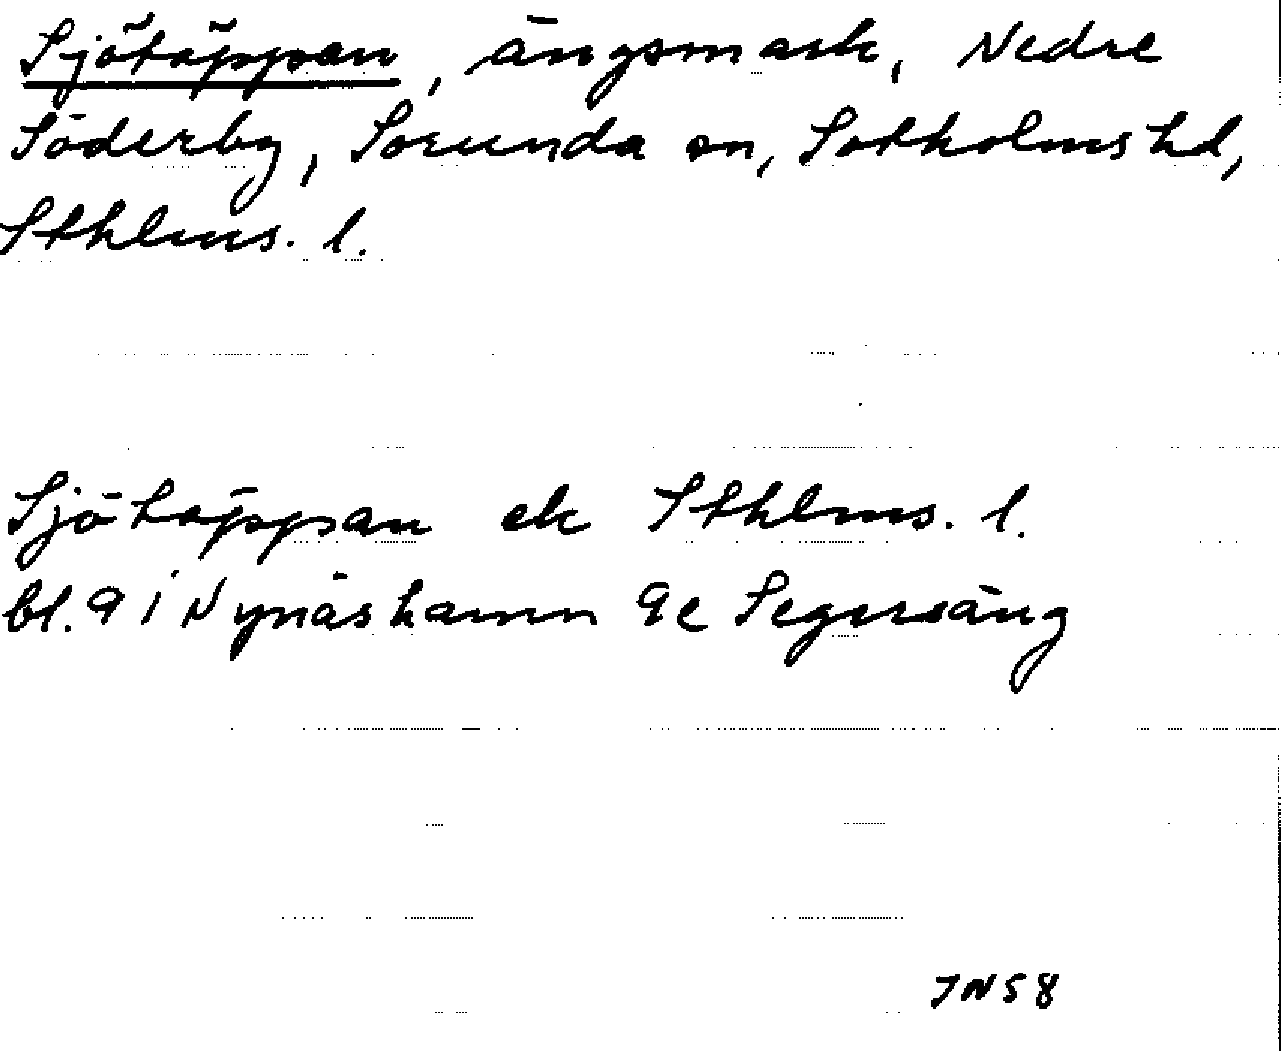 Sjötäppan, ängsmark, Nedre
Söderby, Sorunda sn, Sotholms hd,
Sthlms. l.
Sjötäppan ek Sthlms. l.
bl. 9 i Nynäshamn 9e Segersäng
JN58